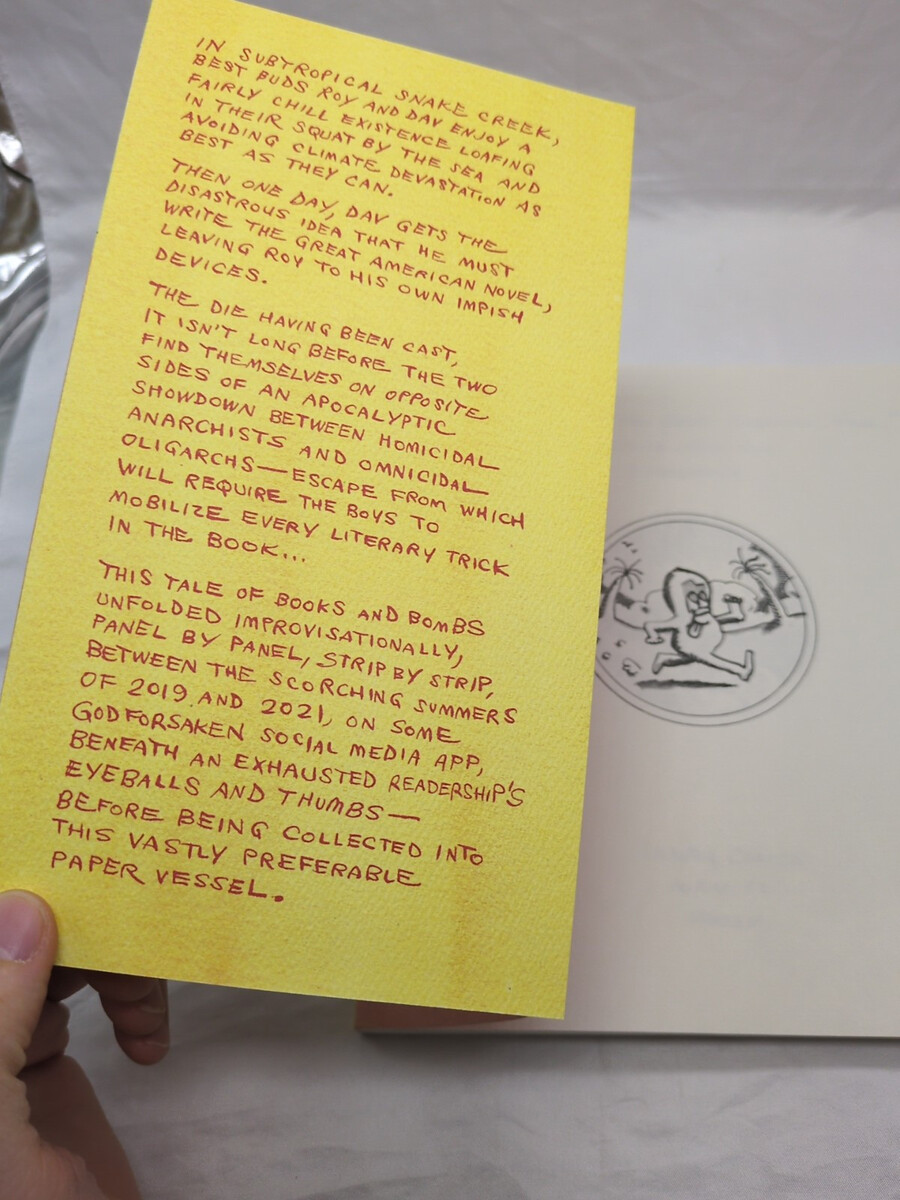 IN SUBTROPICAL SNAKE CREEK,
BEST BUDS ROY AND DAV ENJOY A
FAIRLY CHILL EXISTENCE LOAFING
IN THEIR SQUAT BY THE SEA AND
AVOIDING CLIMATE DEVASTATION AS
BEST AS THEY CAN.
THEN ONE DAY, DAV GETS THE
DISASTROUS IDEA THAT HE MUST
WRITE THE GREAT AMERICAN NOVEL,
LEAVING ROY TO HIS OWN IMPISH
DEVICES.
THE DIE HAVING BEEN CAST,
IT ISN'T LONG BEFORE THE TWO
FIND THEMSELVES ON OPPOSITE
SIDES OF AN APOCALYPTIC
SHOWDOWN BETWEEN HOMICIDAL
ANARCHISTS AND OMNICIDAL
OLIGARCHS—ESCAPE FROM WHICH
WILL REQUIRE THE BOYS TO
MOBILIZE EVERY LITERARY TRICK
IN THE BOOK...
THIS TALE OF BOOKS AND BOMBS
UNFOLDED IMPROVISATIONALLY,
PANEL BY PANEL, STRIP BY STRIP,
BETWEEN THE SCORCHING SUMMERS
OF 2019 AND 2021, ON SOME
GODFORSAKEN SOCIAL MEDIA APP,
BENEATH AN EXHAUSTED READERSHIP'S
EYEBALLS AND THUMBS—
BEFORE BEING COLLECTED INTO
THIS VASTLY PREFERABLE
PAPER VESSEL.